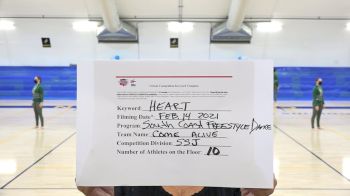 Keyword: HEART
Filming Date: FEB 14 2021
Program: South Coast FREESTYLE DANCE
Team Name: COME ALIVE
Competition Division: SSJ
Number of Athletes on the Floor: 10